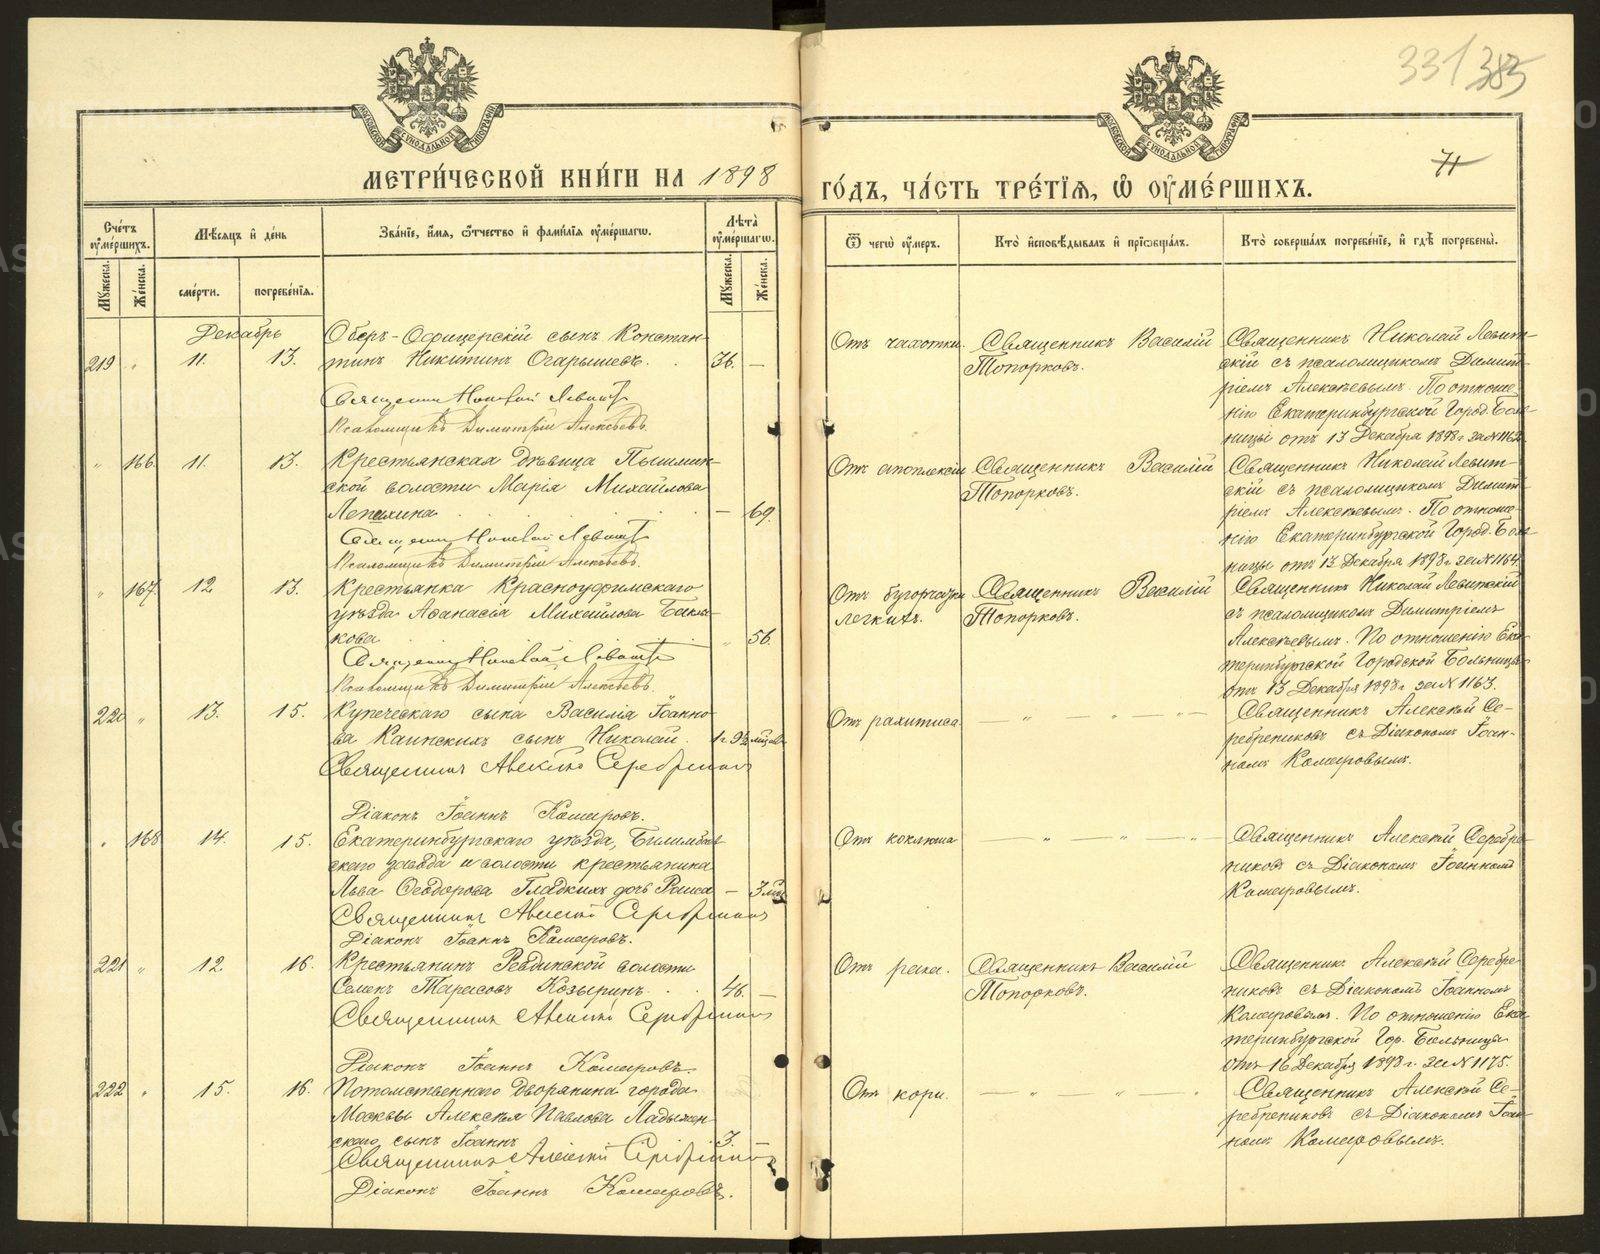 331 385
71
МОСКОВСКОЙ СѴНОДАЛЬНОЙ ТИПОГРАФІИ
МОСКОВСКОЙ СѴНОДАЛЬНОЙ ТИПОГРАФІИ
МЕТРИ́ЧЕСКОЙ КНИ́ГИ НА 1898
ГО́ДЪ, ЧА́СТЬ ТРЕ́ТІѦ, Ѡ ОУМЕ́РШИХЪ.
Сче́тъ оуме́ршихъ.
Мѣсяцъ и де́нь
Зва́ніе, и́мя, ѻтчество и фами́лія оуме́ршагѡ.
Лѣта̀ оуме́ршагѡ.
Ѿ чегѡ̀ оу́меръ.
Кто̀ исповѣ́дывалъ и пріѻбща́лъ.
Кто̀ соверша́лъ погребе́ніе, и гдѣ̀ погребены̀.
Мꙋжеска.
Же́нска.
сме́рти.
погребе́нія.
Мꙋжеска.
Же́нска.
Декабрь
219 " 11. 13.
Оберъ-Офицерскій сынъ Констан-
тинъ Никитинъ Огарышевъ. 36. —
Священникъ Николай Левитскій
Псаломщикъ Димитрій Алексѣевъ.
Отъ чахотки.
Священникъ Василій
Топорковъ.
Священникъ Николай Левит-
скій съ псаломщикомъ Димит-
ріемъ Алексѣевымъ. По отноше-
нію Екатеринбургской Город. Боль-
ницы отъ 13 Декабря 1898 г за № 1162.
" 166. 11. 13.
Крестьянская дѣвица Пышмин-
ской волости Марія Михайлова
Лепихина — 69.
Священникъ Николай Левитскій
Псаломщикъ Димитрій Алексѣевъ.
Отъ апоплексіи
Священникъ Василій
Топорковъ.
Священникъ Николай Левит-
скій съ псаломщикомъ Димит-
ріемъ Алексѣевымъ. По отноше-
нію Екатеринбургской Город. Боль-
ницы отъ 13 Декабря 1898 г за № 1164.
" 167. 12 13.
Крестьянка Красноуфимскаго
уѣзда Афанасія Михайлова
кова " 56.
Священникъ Николай Левитскій
Псаломщикъ Димитрій Алексѣевъ.
Отъ бугорчатки
легкихъ.
Священникъ Василій
Топорковъ.
Священникъ Николай Левитскій
съ псаломщикомъ Димитріемъ
Алексѣевымъ. По отношенію Ека-
теринбургской Городской Больницы
отъ 13 Декабря 1898 г за № 1163.
220 " 13. 15.
Купеческаго сына Василія Іоанно-
ва Каинскихъ сынъ Николай.
Священникъ Алексій Серебренниковъ
Діаконъ Іоаннъ Комаровъ.
Отъ рахитиса.
— " — " — " —
Священникъ Алексій Се-
ребрениковъ съ Діакономъ Іоан-
номъ Комаровымъ.
" 168 14. 15.
Екатеринбургскаго уѣзда, Билимбаев-
скаго завода и волости крестьянина
Льва Ѳеодорова Гладкихъ дочь Раиса — 3 мѣс
Священникъ Алексій Серебренниковъ
Діаконъ Іоаннъ Комаровъ.
Отъ коклюша
— " — " — "
Священникъ Алексій Серебре-
никовъ съ Діакономъ Іоанномъ
Комаровымъ.
221 " 12. 16.
Крестьянинъ Ревдинской волости
Семенъ Тарасовъ Козыринъ. 46. —
Священникъ Алексій Серебренниковъ
Діаконъ Іоаннъ Комаровъ.
Отъ рака.
Священникъ Василій
Топорковъ.
Священникъ Алексій Серебре-
никовъ съ Діакономъ Іоанномъ
Комаровымъ. По отношенію Ека-
теринбургской Гор. Больницы
отъ 16 Декабря 1898 г. за № 1175.
222 " 15. 16.
Потомственнаго дворянина города
Москвы Алексѣя Павлова Ладыжен-
скаго сынъ Іоаннъ 3. —
Священникъ Алексій Серебренниковъ
Діаконъ Іоаннъ Комаровъ.
Отъ кори.
— " — " — "
Священникъ Алексій Се-
ребрениковъ съ Діакономъ Іоан-
номъ Комаровымъ.